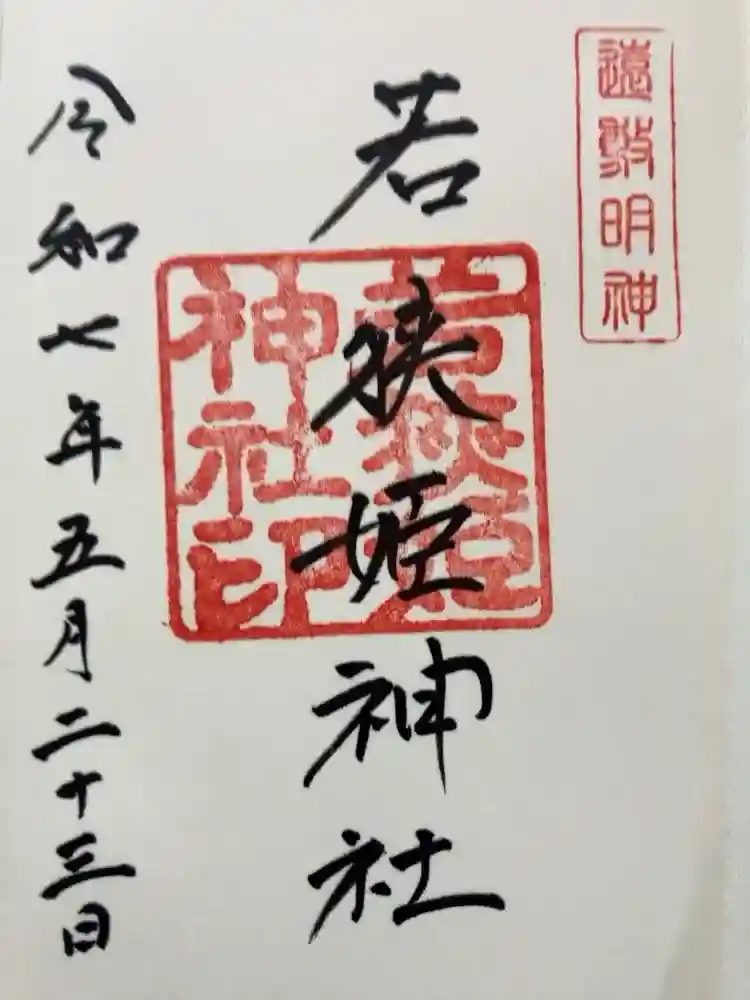 遠敷明神
若狭姫神社
若狭姫
神社印
令和七年五月二十三日